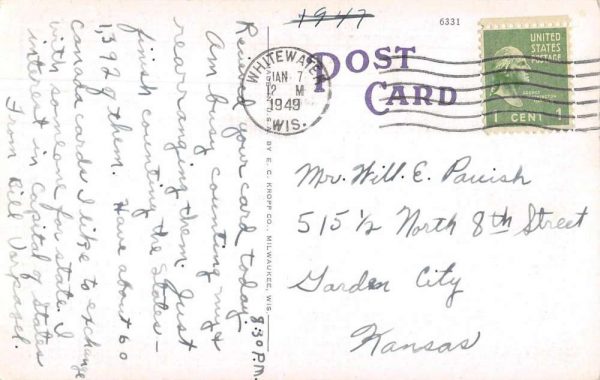 1947
6331
POST
CARD
WHITEWATER
JAN 7
12 M
1949
WIS.
UNITED
STATES
POSTAGE
GEORGE
WASHINGTON
1 CENT 1
BY E. C. KROPP CO., MILWAUKEE, WIS.
8:30 P.M.
Reiced your card today.
Am busy counting my &
rearranging them. Just
finish counting the States -
1,392 of them. Have about 60
Canada cards I like to exchange
with someone for state. I
interest in Capital of States
From Bill
Mr. Will. E. Parrish
515 1/2 North 8th Street
Garden City
Kansas